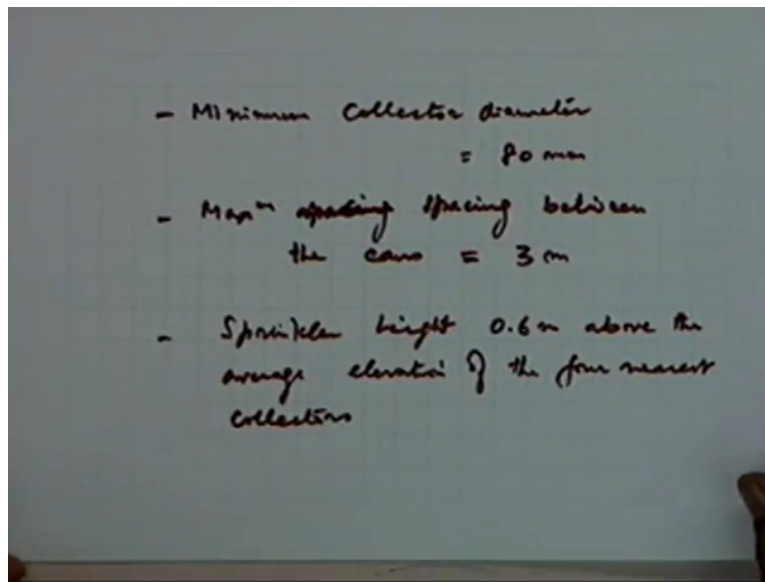 - Minimum Collector diameter
= 80 mm
- Maxᵐ spacing spacing between
the cans = 3 m
- Sprinkler height 0.6 m above the
average elevation of the four nearest
collectors